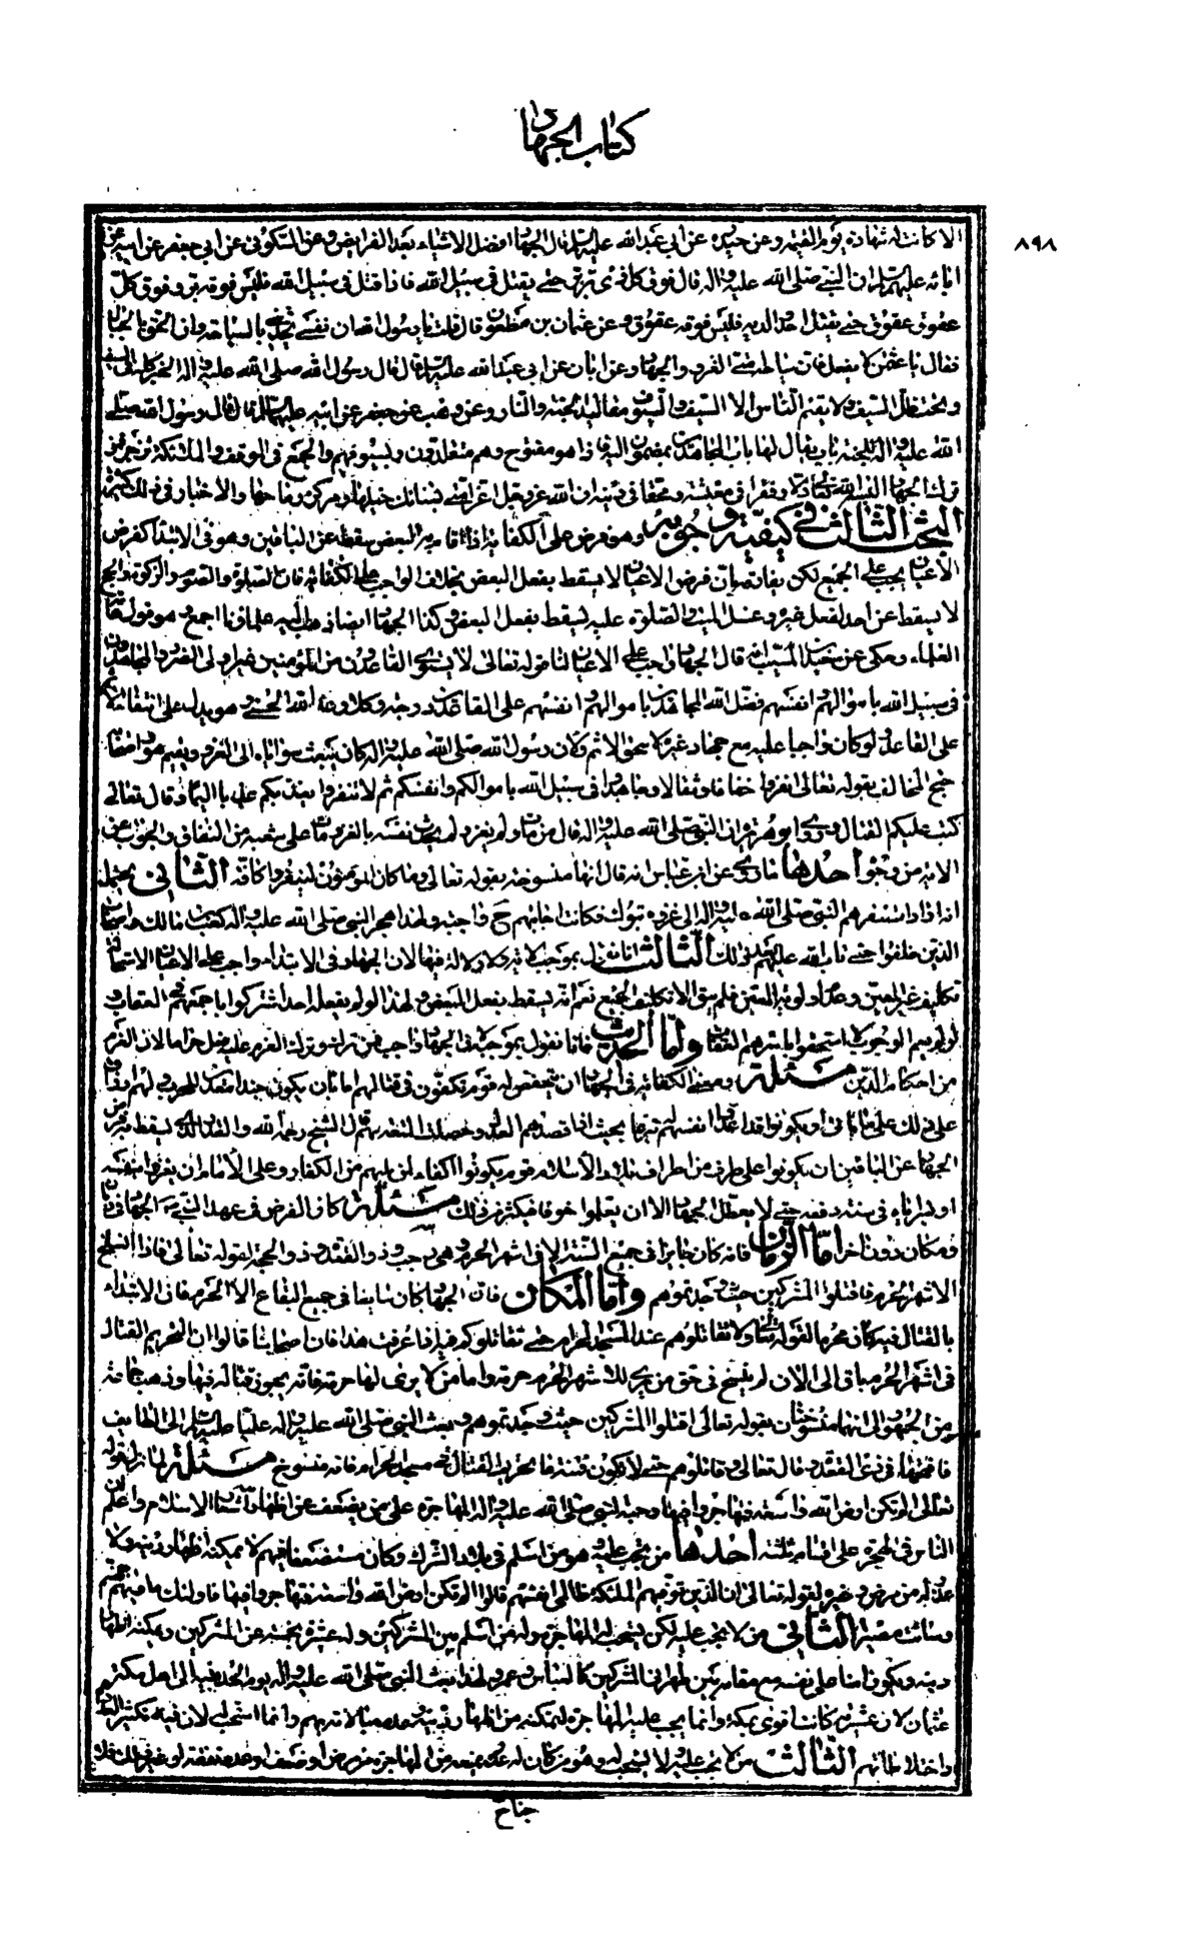 كتاب الجهاد
٨٩٨
الا كانت له شهادة يوم القيمة وعن حيدرة عن ابي عبد الله عليه السلم قال الجهاد افضل الاشياء بعد الفرايض وعن السكوني عن ابي جعفر عن ابيه عن
ابائه عليهم السلم ان النبي صلى الله عليه واله قال فوق كل ذي بر بر حتى يقتل في سبيل الله فاذا قتل في سبيل الله فليس فوقه بر وفوق كل
عقوق عقوق حتى يقتل احد والديه فليس فوقه عقوق وعن عثمان بن مظعون قال قلت يا رسول الله ان نفسي تحدثني بالسياحة وان الحق بالجبال
فقال يا عثمن لا تفعل فان سياحة امتي الغزو والجهاد وعن ابان عن ابي عبد الله عليه السلم قال قال رسول الله صلى الله عليه واله الخير كله في السيف
وتحت ظل السيف ولا يقيم الناس الا السيف والسيوف مقاليد الجنة والنار وعن وهب عن جعفر عن ابيه عليهما السلم قال قال رسول الله صلى
الله عليه واله للجنة باب يقال لها باب المجاهدين يمضون اليه فاذا هو مفتوح وهم متقلدون بسيوفهم والجمع في الموقف والملئكة ترحب فمن
ترك الجهاد البسه الله ذلا وفقرا في معيشته ومحقا في دينه ان الله عز وجل اغز امتي بسنابك خيلها ومراكز رماحها والاخبار في ذلك كثيرة
البحث الثالث في كيفية وجوبه وهو فرض على الكفاية اذا قام به البعض سقط عن الباقين وهو في الابتداء كفرض
الاعيان يجب على الجميع لكن يفارقه بان فرض الاعيان لا يسقط بفعل البعض بخلاف الواجب على الكفاية فان الصلوة والصوم والزكوة والحج
لا يسقط عن احد لفعل غيره وغسل الميت والصلوة عليه يسقط بفعل البعض وكذا الجهاد ايضا ذهب اليه علماؤنا اجمع وهو قول عامة
العلماء وحكي عن سعيد بن المسيب انه قال الجهاد واجب على الاعيان لنا قوله تعالى لا يستوي القاعدون من المؤمنين غير اولي الضرر والمجاهدون
في سبيل الله باموالهم وانفسهم فضل الله المجاهدين باموالهم وانفسهم على القاعدين درجة وكلا وعد الله الحسنى وهو يدل على انتفاء الاثم
على القاعد ولو كان واجبا عليه مع جهاد غيره لاستحق الاثم ولان رسول الله صلى الله عليه واله كان يبعث سراياه الى الغزو ويقيم هو واصحابه
احتج المخالف بقوله تعالى انفروا خفافا وثقالا وجاهدوا في سبيل الله باموالكم وانفسكم ثم لا تنفروا يعذبكم عذابا اليما وقال تعالى
كتب عليكم القتال وروى ابو هريرة ان النبي صلى الله عليه واله قال من مات ولم يغز ولم يحدث نفسه بالغزو مات على شعبة من النفاق والجواب عن
الاية من وجوه احدها ما روي عن ابن عباس انه قال انها منسوخة بقوله تعالى وما كان المؤمنون لينفروا كافة الثاني يحتمل
انه اراد استنفرهم النبي صلى الله عليه واله الى غزوة تبوك فكانت اجابتهم ح واجبة ولهذا هجر النبي صلى الله عليه واله كعب بن مالك واصحابه
الذين خلفوا حتى تاب الله عليهم بعد ذلك الثالث انا نقول بموجب الاية ولا دلالة فيها لان الجهاد في الابتداء واجب على الاعيان لاستحالة
تكليف غير المعين وعدم اولوية المعين فلم يبق الا تكليف الجميع نعم انه يسقط بفعل البعض ولهذا لو لم يفعله احد اشتركوا باجمعهم في العقاب و
لو لم يعم الوجوب لما استحقوا باسرهم العقاب واما الحديث فانا نقول بموجبه لان الجهاد واجب فمن تركه وترك العزم عليه فعل حراما لان العزم
من احكام الدين مسئلة ومعنى الكفاية في الجهاد ان ينهض له قوم يكفون في قتالهم اما بان يكون جندا معدا للحرب ولهم ارزاق
على ذلك على ما ياتي او يكونوا قد اعدوا انفسهم تبرعا بحيث اذا قصدهم العدو حصلت المنعة بهم قال الشيخ رحمه الله والقدر الذي يسقط به فرض
الجهاد عن الباقين ان يكونوا على طرف من اطراف بلاد الاسلام قوم يكونوا اكفاء لمن يليهم من الكفار وعلى الامام ان يغزوا بنفسه
او بسراياه في كل سنة دفعة حتى لا يتعطل الجهاد الا ان يعلموا خوفا فيكثر من ذلك مسئلة كان الفرض في عهد النبي ص الجهاد في زمان
ومكان دون اخر اما الزمان فانه كان جايزا في جميع السنة الا في اشهر الحرم وهي رجب وذو القعدة وذو الحجة لقوله تعالى فاذا انسلخ
الاشهر الحرم فاقتلوا المشركين حيث وجدتموهم واما المكان فان الجهاد كان سايغا في جميع البقاع الا الحرم فان الابتداء
بالقتال فيه كان محرما لقوله تعالى ولا تقاتلوهم عند المسجد الحرام حتى يقاتلوكم فيه اذا عرفت هذا فان اصحابنا قالوا ان تحريم القتال
في اشهر الحرم باقي الى الان لم ينسخ في حق من يرى لشهر الحرم حرمة واما من لا يرى لها حرمة فانه يجوز قتاله فيها وذهب جماعة
من الجمهور الى انهما منسوختان بقوله تعالى اقتلوا المشركين حيث وجدتموهم وبعث النبي صلى الله عليه واله عليا عليه السلم الى الطايف
فافتتحها في ذي القعدة وقال تعالى وقاتلوهم حتى لا تكون فتنة فاما تحريم القتال في مسجد الحرام فانه منسوخ مسئلة لما نزل قوله
تعالى الم تكن ارض الله واسعة فتهاجروا فيها وجب النبي صلى الله عليه واله المهاجرة على من يضعف عن اظهار شعائر الاسلام واعلم ان
الناس في الهجرة على اقسام ثلثة احدها من تجب عليه وهو من اسلم في بلاد الشرك وكان مستضعفا فيهم لا يمكنه اظهار دينه ولا
عذر له من مرض وغيره لقوله تعالى ان الذين توفيهم الملئكة ظالمي انفسهم قالوا الم تكن ارض الله واسعة فتهاجروا فيها فاولئك ماويهم جهنم
وسائت مصيرا الثاني من لا تجب عليه لكن يستحب له المهاجرة وهو من اسلم بين المشركين وله عشيرة تحميه عن المشركين ويمكنه اظهار
دينه ويكون امنا على نفسه مع مقامه بين ظهراني المشركين كالعباس وعمر ولهذا بعث النبي صلى الله عليه واله يوم الحديبية الى اهل مكة
عثمان لان عشيرته كانت اقوى بمكة وانما لم يجب عليه المهاجرة لتمكنه من اظهار دينه وعدم مبالاته بهم وانما استحب له لان فيه تكثير العدد
واختلاطا بهم الثالث من لا تجب عليه ولا يستحب له وهو من كان له عذر يمنعه من المهاجرة من مرض او ضعف او عدم نفقة او غير ذلك فلا
جناح